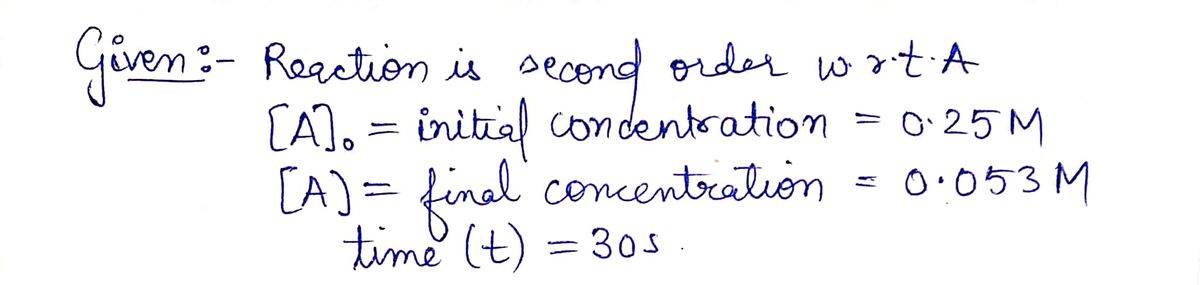 Given:- Reaction is second order w.r.t.A
[A]₀ = initial concentration = 0.25 M
[A] = final concentration = 0.053 M
time (t) = 30s.